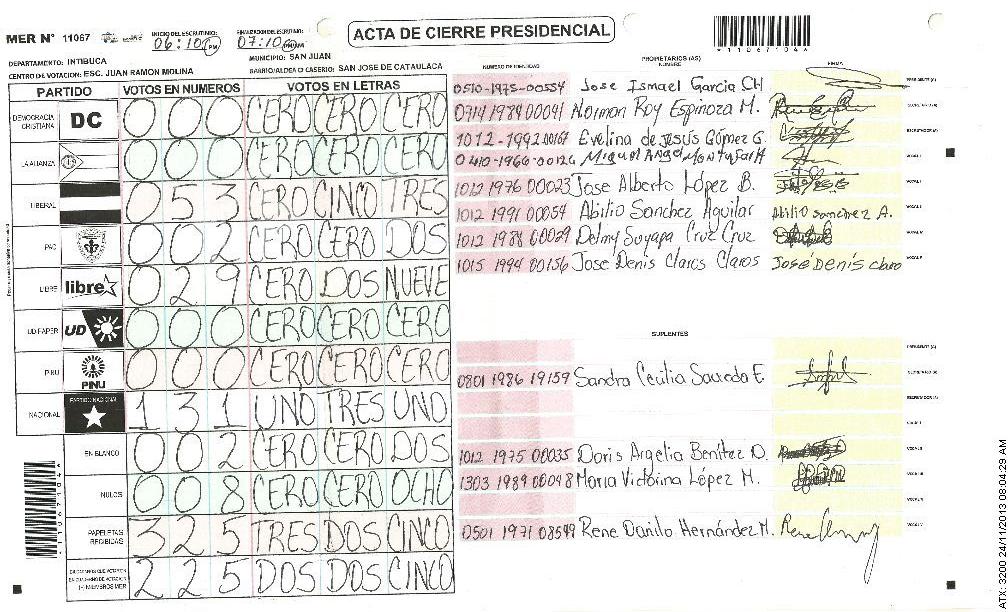 ACTA DE CIERRE PRESIDENCIAL
MER N° 11067
INICIO DEL ESCRUTINIO: 06:10 PM
FINALIZACION DEL ESCRUTINIO: 07:10 PM
*110671044*
DEPARTAMENTO: INTIBUCA
MUNICIPIO: SAN JUAN
CENTRO DE VOTACION: ESC. JUAN RAMON MOLINA
BARRIO/ALDEA O CASERIO: SAN JOSE DE CATAULACA
PARTIDO VOTOS EN NUMEROS VOTOS EN LETRAS
DEMOCRACIA CRISTIANA DC 0 0 0 CERO CERO CERO
LA ALIANZA 0 0 0 CERO CERO CERO
LIBERAL 0 5 3 CERO CINCO TRES
PAC 0 0 2 CERO CERO DOS
LIBRE libre 0 2 9 CERO DOS NUEVE
UD FAPER UD 0 0 0 CERO CERO CERO
PINU PINU 0 0 0 CERO CERO CERO
NACIONAL PARTIDO NACIONAL 1 3 1 UNO TRES UNO
EN BLANCO 0 0 2 CERO CERO DOS
NULOS 0 0 8 CERO CERO OCHO
PAPELETAS RECIBIDAS 3 2 5 TRES DOS CINCO
CIUDADANOS QUE VOTARON EN CUADERNO DE VOTACION (+) MIEMBROS MER 2 2 5 DOS DOS CINCO
PROPIETARIOS (AS)
NUMERO DE IDENTIDAD NOMBRE FIRMA
0510-1975-00554 Jose Ismael Garcia CH PRESIDENTE (A)
0714 1984 00041 Norman Roy Espinoza M. SECRETARIO (A)
1012-1992 00167 Evelina de Jesús Gómez G. ESCRUTADOR (A)
0410-1966-00126 Miguel Angel VOCAL I
1012 1976 00023 Jose Alberto López B.
1012 1991 00054 Abilio Sanchez Aguilar Abilio sanchez A.
1012 1984 00029 Delmy Suyapa Cruz Cruz
1015 1994 00156 José Denis Claros Claros José Denis Claro
SUPLENTES
PRESIDENTE (A)
0801 1986 19159 Sandra Cecilia Saucedo E. SECRETARIO (A)
ESCRUTADOR (A)
VOCAL I
1012 1975 00035 Doris Argelia Benítez D.
1303 1989 00048 Maria Victorina López M.
0501 1971 08549 Rene Danilo Hernández M.
*110671044*
ATX: 3200 24/11/2013 08:04:29 AM